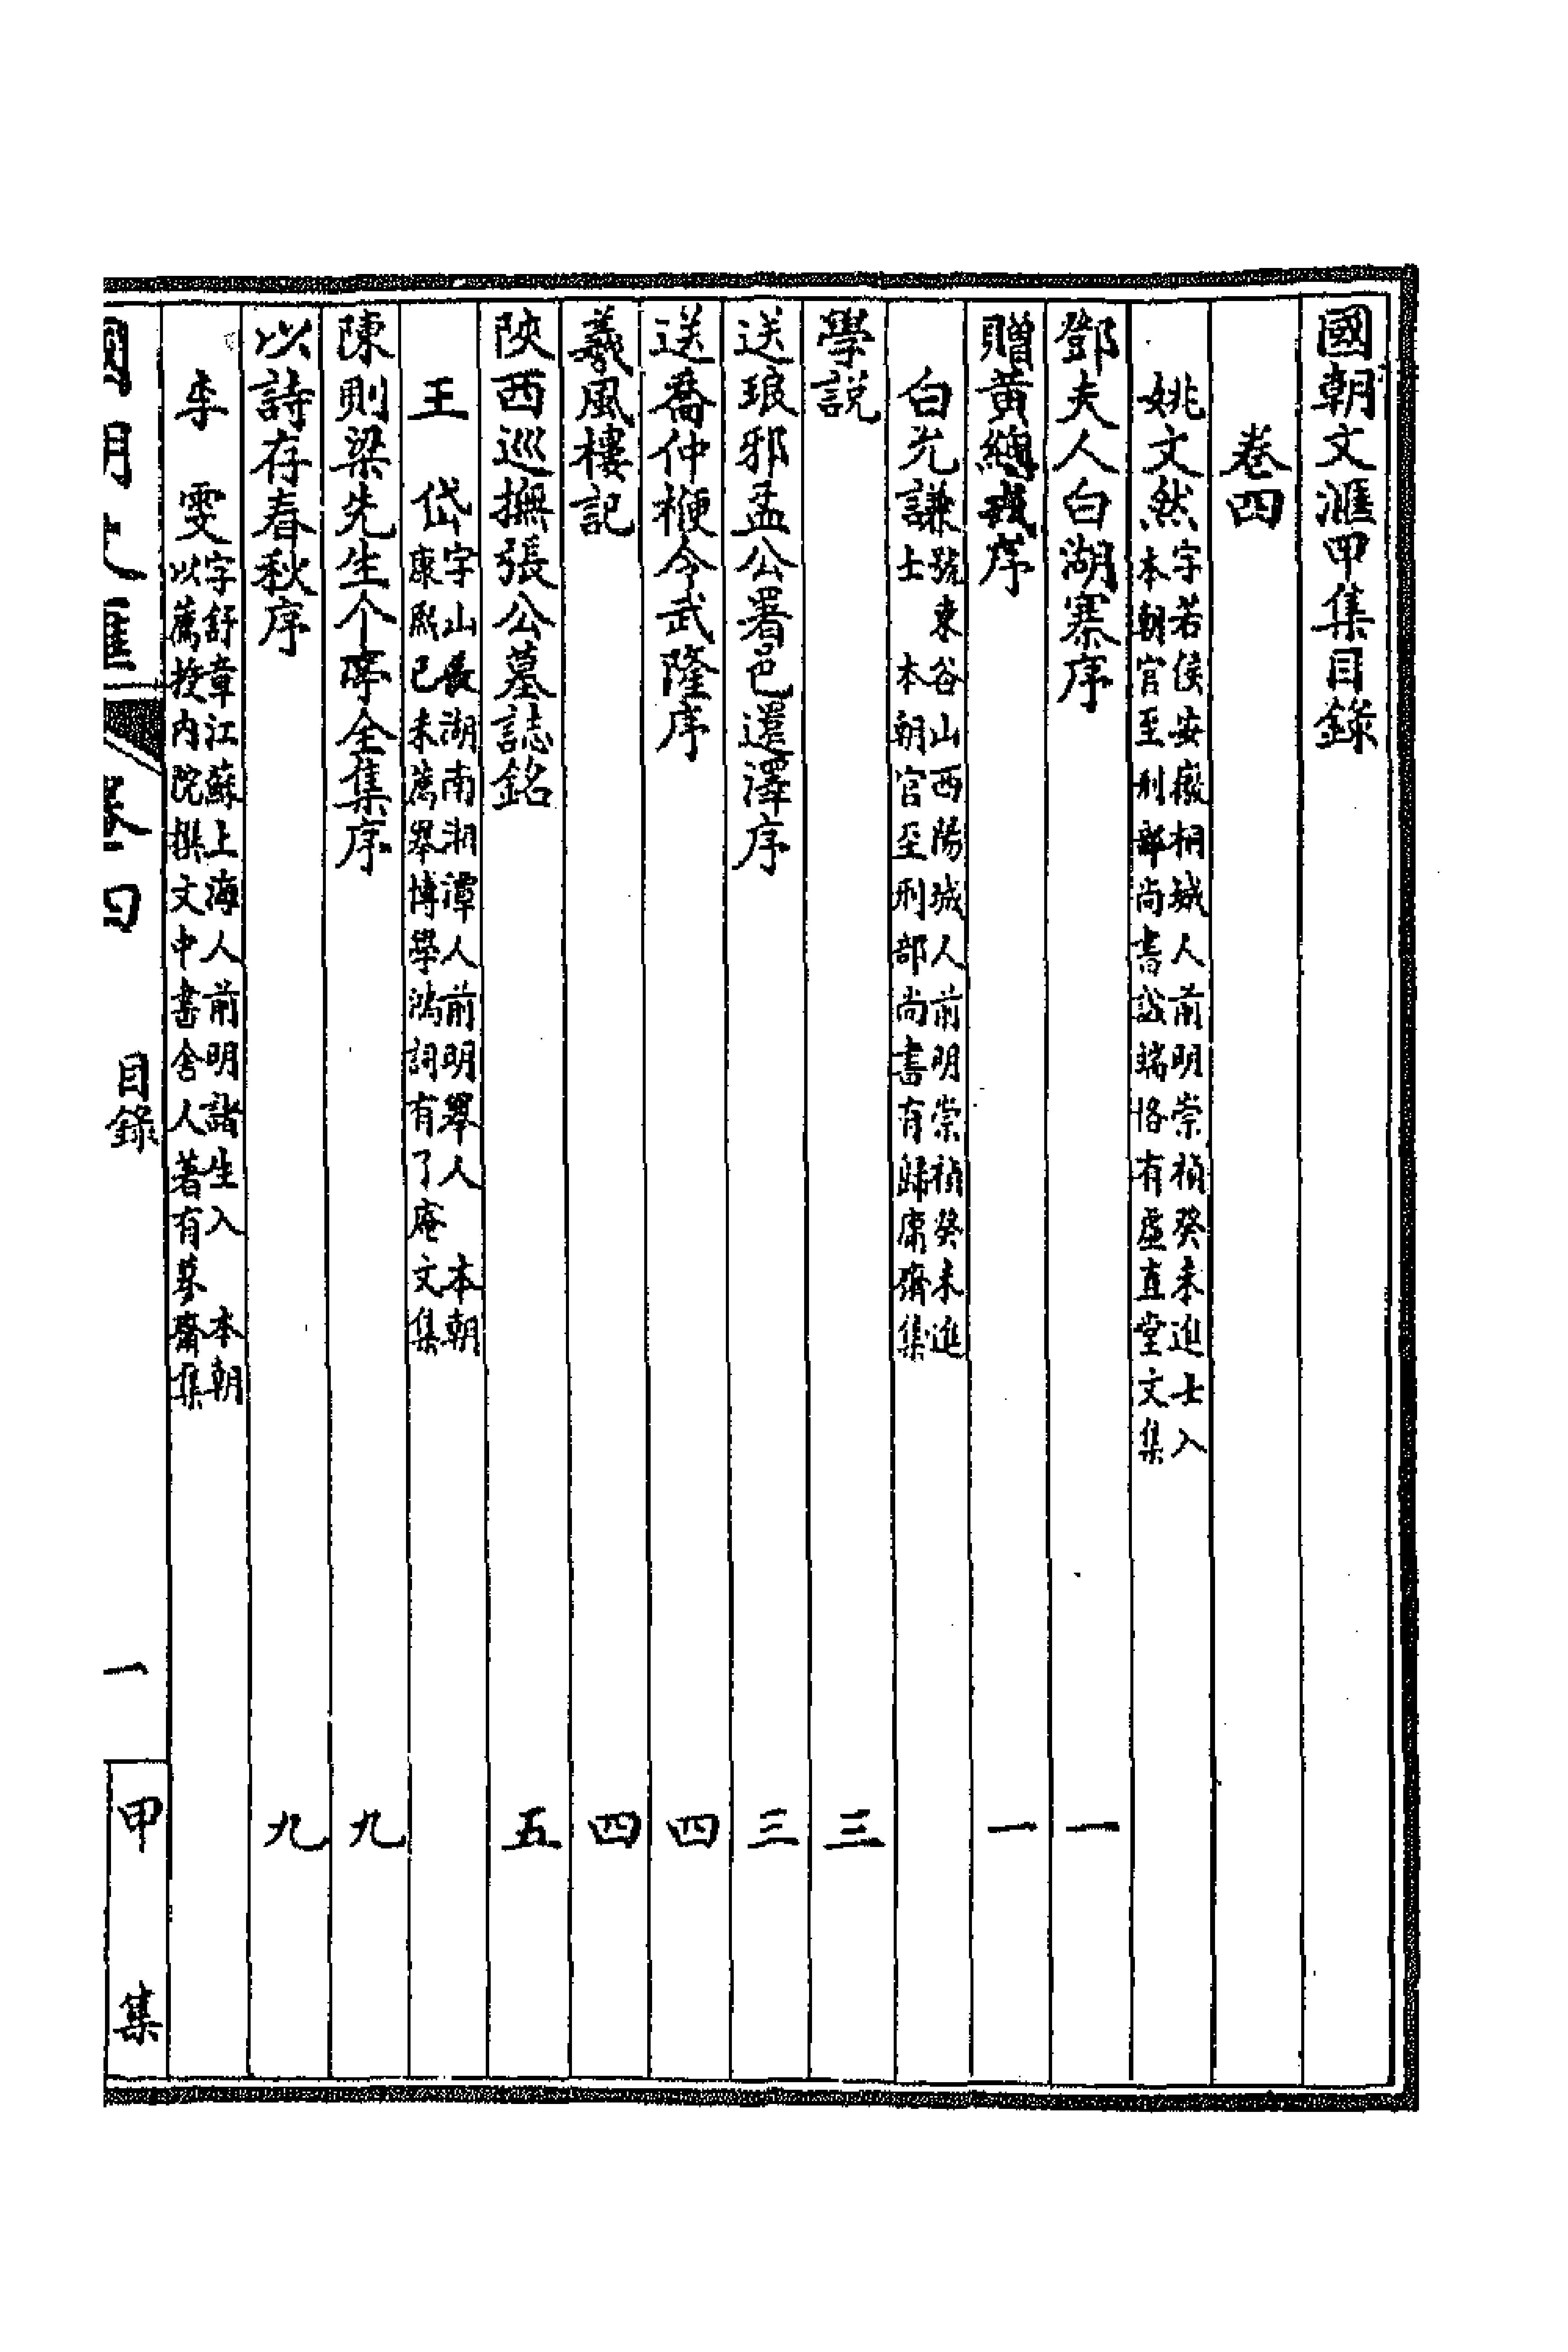 國朝文滙甲集目錄
卷四
姚文然 字若侯安徽桐城人前明崇禎癸未進士入
本朝官至刑部尚書諡端恪有虛直堂文集
鄧夫人白湖寨序 一
贈黃總戎序 一
白允謙 號東谷山西陽城人前明崇禎癸未進
士 本朝官至刑部尚書有歸庸齋集
學說 三
送琅邪孟公署邑還澤序 三
送喬仲梗令武隆序 四
羲風樓記 四
陝西巡撫張公墓誌銘 五
王 岱 字山長湖南湘潭人前明舉人 本朝
康熙己未薦舉博學鴻詞有了庵文集
陳則梁先生个亭全集序 九
以詩存春秋序 九
李 雯 字舒章江蘇上海人前明諸生入 本朝
以薦授內院撰文中書舍人著有蓼齋集
國朝文滙 卷四 目錄 一 甲集